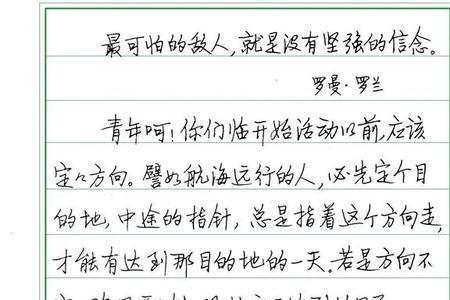 最可怕的敌人,就是没有坚强的信念。
罗曼·罗兰
青年呵!你们临开始活动以前,应该
定定方向。譬如航海远行的人,必先定个目
的地,中途的指针,总是指着这个方向走,
才能有达到那目的地的一天。若是方向不